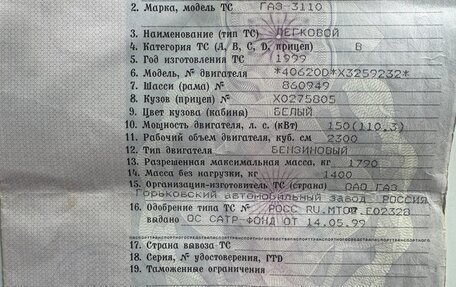 2. Марка, модель ТС ГАЗ-3110
3. Наименование (тип ТС) ЛЕГКОВОЙ
4. Категория ТС (А, В, С, D, прицеп) B
5. Год изготовления ТС 1999
6. Модель, № двигателя *40620D*X3259232*
7. Шасси (рама) № 860949
8. Кузов (прицеп) № X0275805
9. Цвет кузова (кабина) БЕЛЫЙ
10. Мощность двигателя, л. с. (кВт) 150(110.3)
11. Рабочий объем двигателя, куб. см 2300
12. Тип двигателя БЕНЗИНОВЫЙ
13. Разрешенная максимальная масса, кг 1790
14. Масса без нагрузки, кг 1400
15. Организация-изготовитель ТС (страна) ОАО ГАЗ
Горьковский автомобильный завод РОССИЯ
16. Одобрение типа ТС № РОСС RU.MT02.E02328
выдано ОС САТР-ФОНД ОТ 14.05.99
17. Страна вывоза ТС
18. Серия, № удостоверения, ГТD
19. Таможенные ограничения